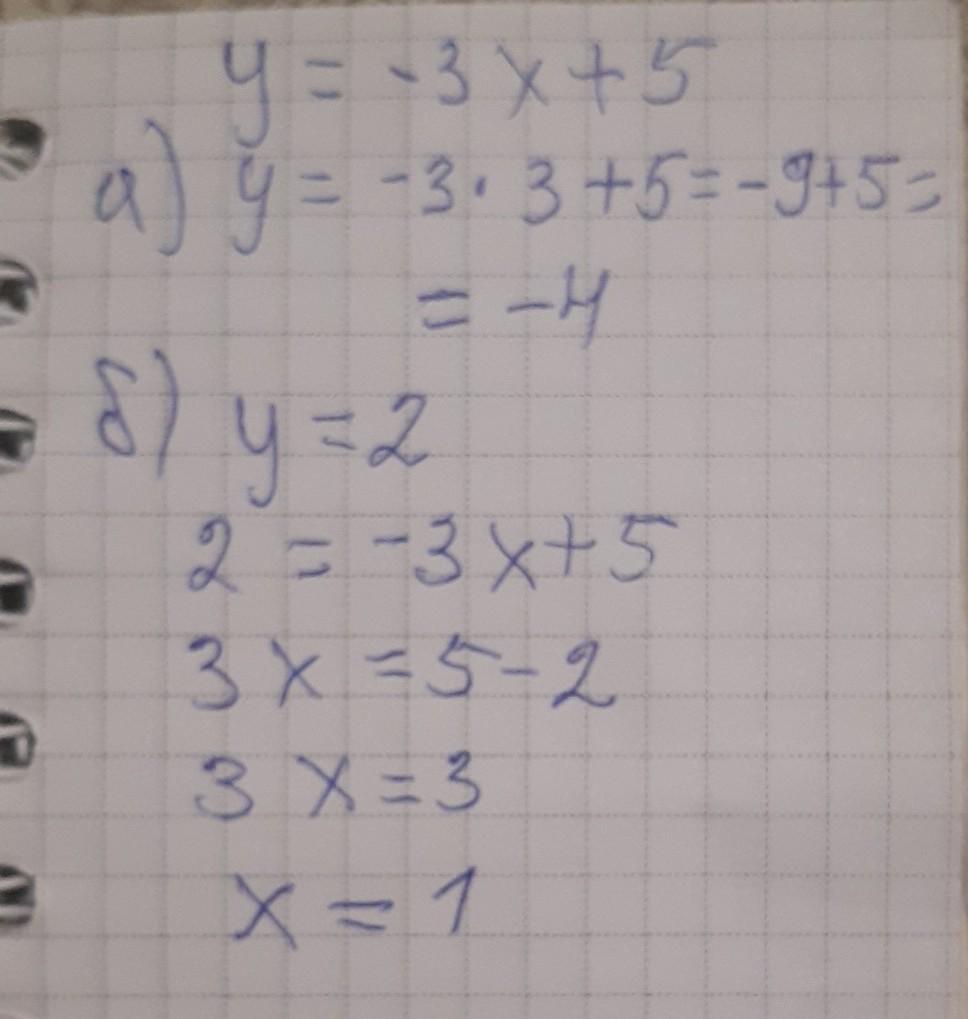 y = -3x+5
а) y = -3·3+5=-9+5=
= -4
б) y=2
2 = -3x+5
3x =5-2
3x=3
x=1